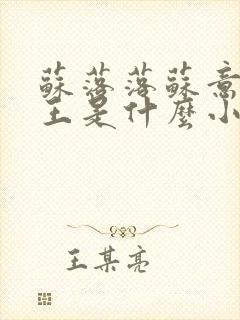 蘇落落蘇意
王是什麼小
王某亮